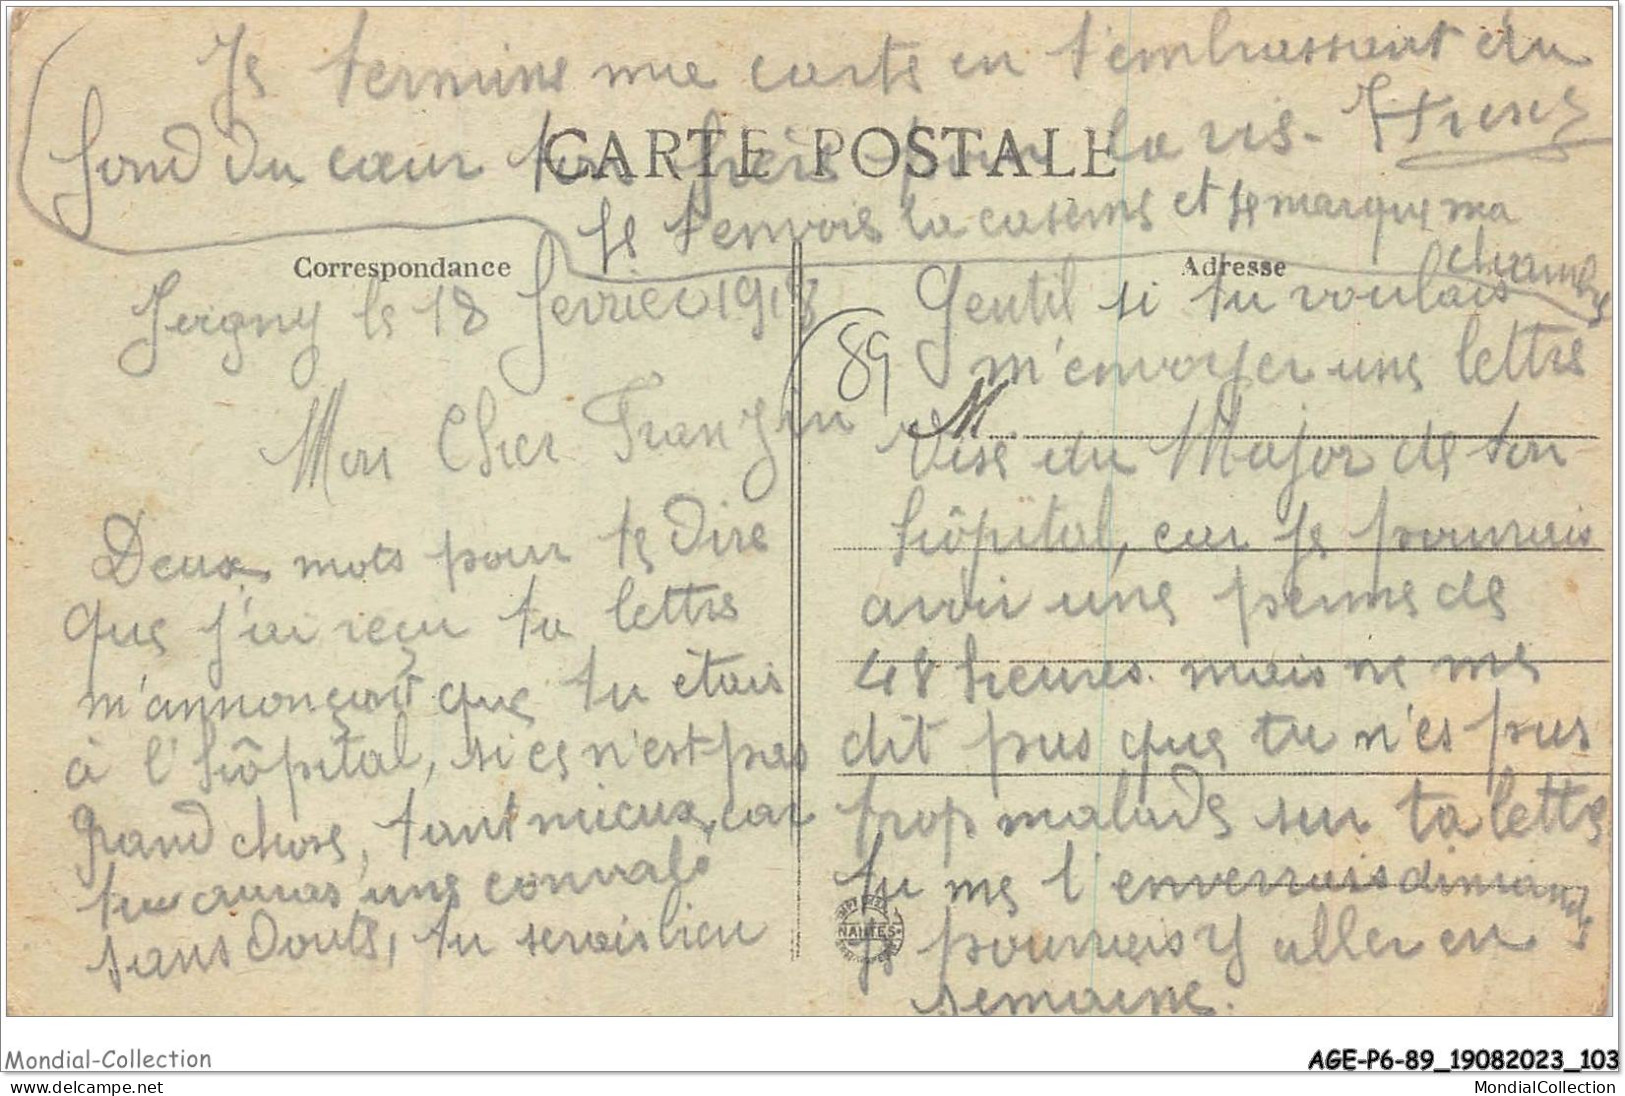 Je termine ma carte en t'embrassant du
fond du cœur ton frère pour la vis-
CARTE POSTALE
Je t'envois la caserne et je marque ma
chambre
Correspondance
le 18 fevrier 1918
Mon Cher Franzin
Deux mots pour te dire
que j'ai reçu ta lettre
m'annonçant que tu étais
à l'hôpital, si ce n'est pas
grand chose, tant mieux, car
tu auras une convalé
sans doute, tu serais bien
Adresse
89
Gentil si tu voulais
m'envoyer une lettre
M
Visé du Major de ton
hôpital, car je pourrais
avoir une perme de
48 heures. mais ne me
dit pas que tu n'es pas
trop malade sur ta lettre
tu me l'enverrais dimanche
NANTES
je pourrais y aller en
semaine.
Mondial-Collection
AGE-P6-89_19082023_103
www.delcampe.net
MondialCollection